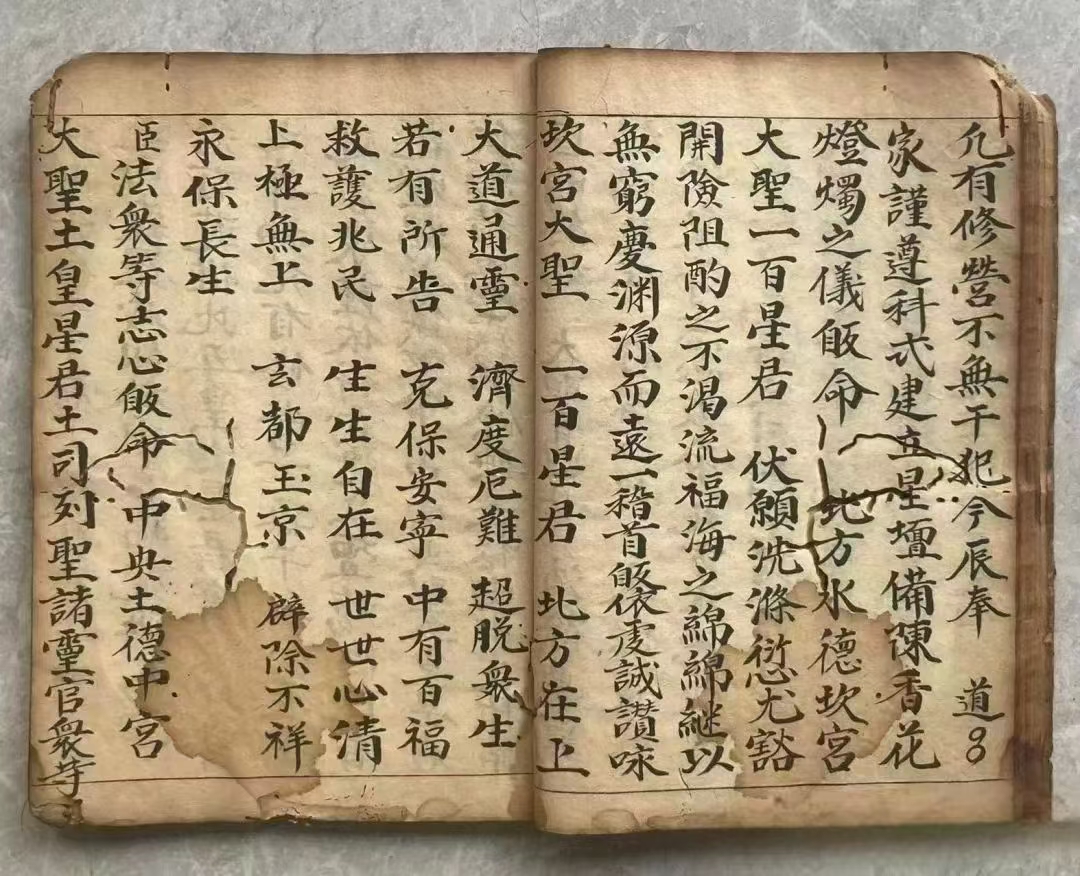 凢有修營不無干犯今辰奉 道〇〇
家謹遵科式建立星壇備陳香花
燈燭之儀皈命 北方水德坎宮
大聖一百星君 伏願洗滌愆尤豁
開險阻酌之不渴流福海之綿綿継以
無窮慶渊源而遠一稽首皈依虔誠讃咏
坎宮大聖 一百星君 北方在上
大道通靈 濟度厄難 超脫衆生
若有所告 克保安寧 中有百福
救護兆民 生生自在 世世心清
上極無上 玄都玉京 辟除不祥
永保長生
臣法衆等志心皈命 中央土德中宮
大聖土皇星君土司列聖諸靈官衆等